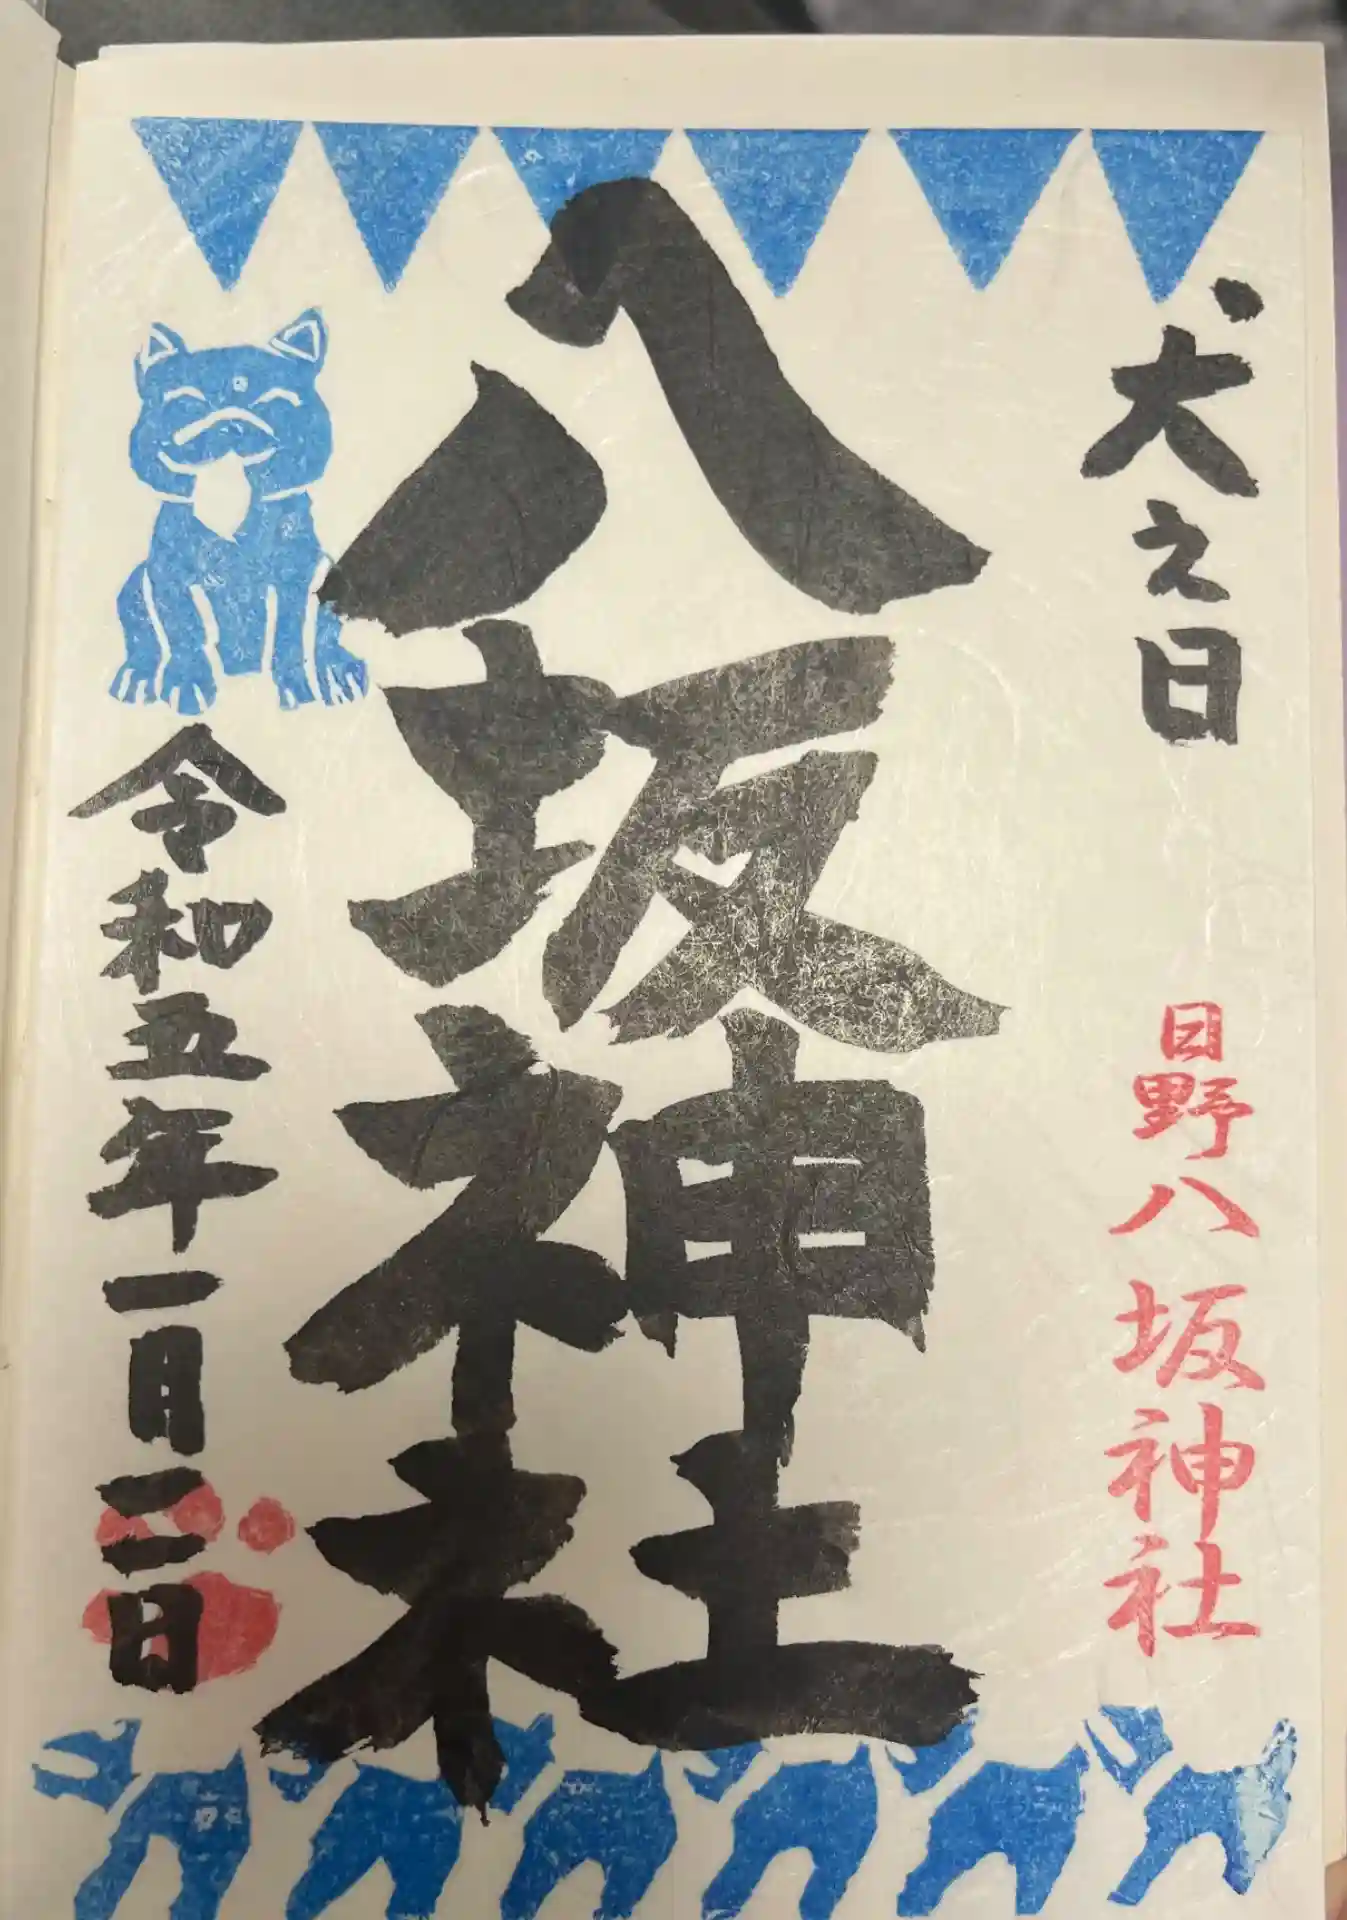 犬之日
日野八坂神社
八坂神社
令和五年一月二二日